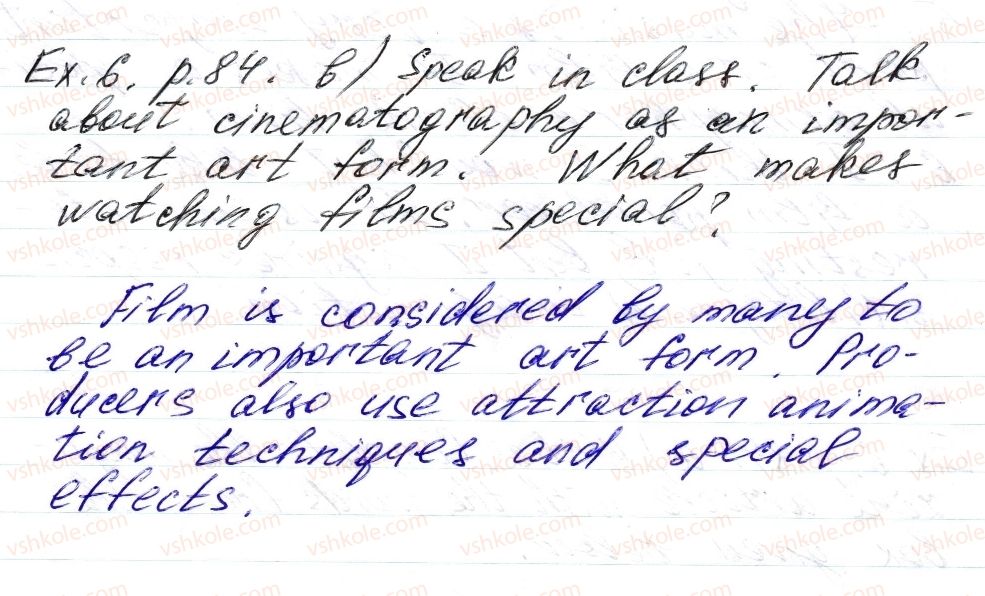 Ex.6. p.84. b) Speak in class. Talk
about cinematography as an impor-
tant art form. What makes
watching films special?
Film is considered by many to
be an important art form. Pro-
ducers also use attraction anima-
tion techniques and special
effects.
vshkole.com